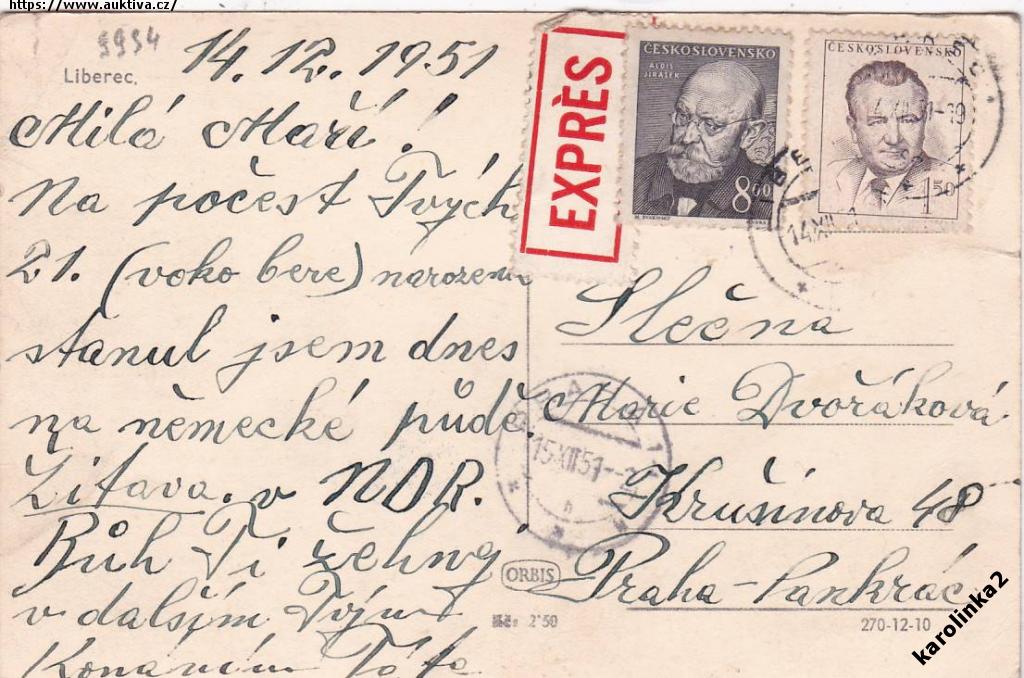 https://www.auktiva.cz/
9934
Liberec.
14.12.1951
Milá Maří!
Na počest Tvých
21. (voko bere) narozenin
stanul jsem dnes
na německé půdě
Žitava. v NDR.
Bůh Ti žehnej
v dalším Tvým
Konaním Táta
EXPRÈS
ČESKOSLOVENSKO
ALOIS
JIRÁSEK
8 00
ČESKOSLOVENSKO
1 50
14.XII.51-19
14.XII.51
PRAHA
15.XII.51
Slečna
Marie Dvořáková
Krušinova 48
Praha-Pankrác
ORBIS
Kčs 2'50
270-12-10
karolinka2